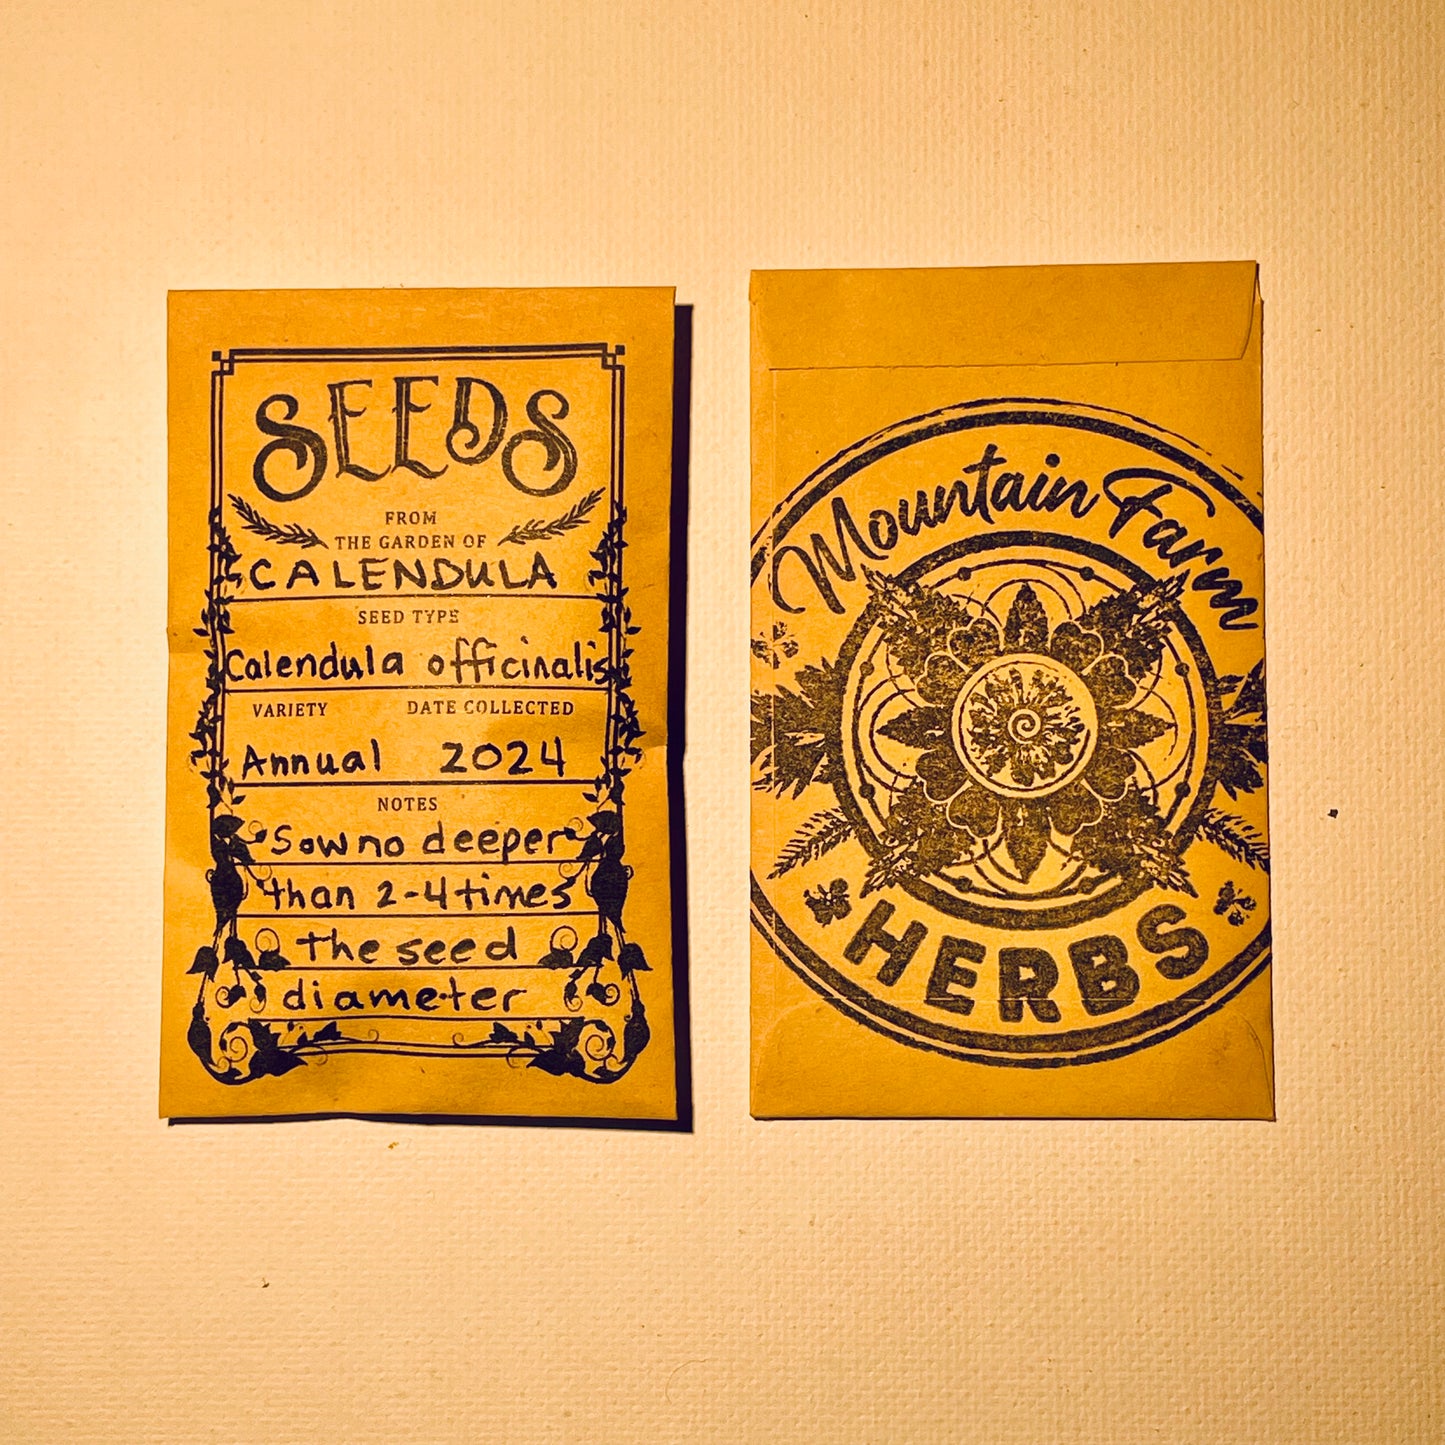 SEEDS
FROM
THE GARDEN OF
CALENDULA
SEED TYPE
Calendula officinalis
VARIETY DATE COLLECTED
Annual 2024
NOTES
Sow no deeper
than 2-4 times
the seed
diameter
Mountain Farm
HERBS